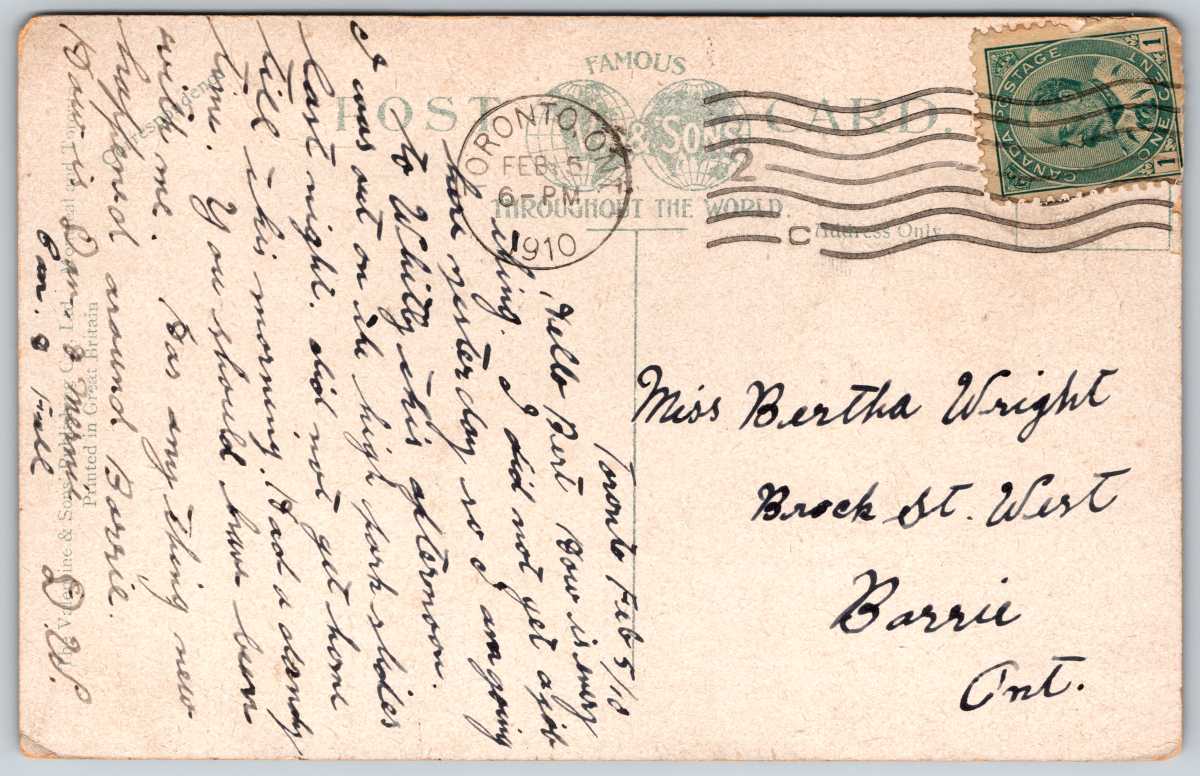 FAMOUS
POST CARD.
& SONS
THROUGHOUT THE WORLD.
Address Only
TORONTO, ONT.
FEB 5
6-PM
1910
2
C
CANADA POSTAGE
ONE CENT
1 1
Miss Bertha Wright
Brock St. West
Barrie
Ont.
Toronto Feb 5/10
Hello Bert How is every
thing. I did not get a job
here yesterday so I am going
to Whitby this afternoon.
I was out on the high park slides
last night. did not get home
till this morning. Had a dandy
time. You should have been
with me. Has any thing new
happened around Barrie.
How is Dan &
D. W.
Valentine & Sons Co. Ltd. Montreal and Toronto
Printed in Great Britain